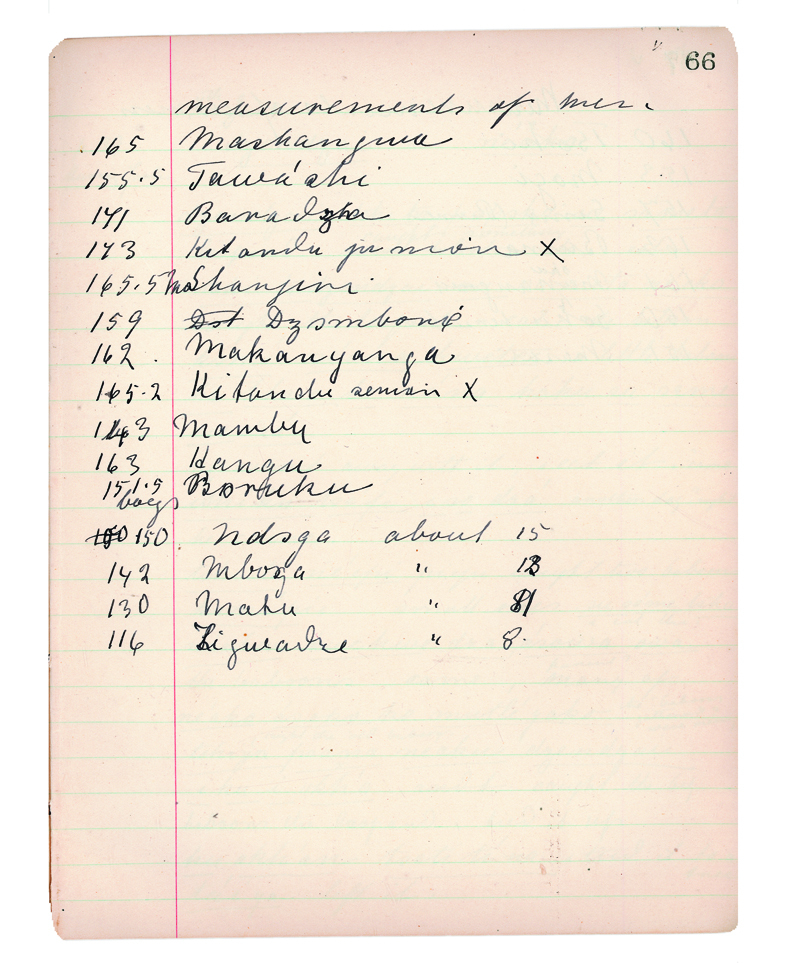 66
measurements of men.
165 Mashangwa
155.5 Tawáshi
171 Baradzha
173 Kitandu ju mòn X
165.5 Mashanjini
159 Dst Dzomboné
162. Makanyanga
165.2 Kitandu semòn X
143 Mambu
163 Kangu
151.5 Boruku
boys
150 150. Ndoga about 15
142 Mboga " 13
130 Matu " 11
116 Zigwadze " 8.